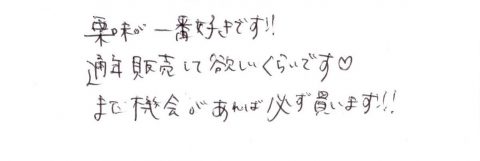 栗味が一番好きです!!
通年販売して欲しいくらいです♡
また機会があれば必ず買います!!!